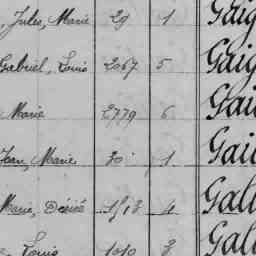 , Jules, Marie 29 1 Gaig
Gabriel, Louis 2067 5 Gaig
Marie 2779 6 Gai
Jean, Marie 30 1 Gai
Marie, Désiré 1513 4 Gall
Louis 1010 3 Gall